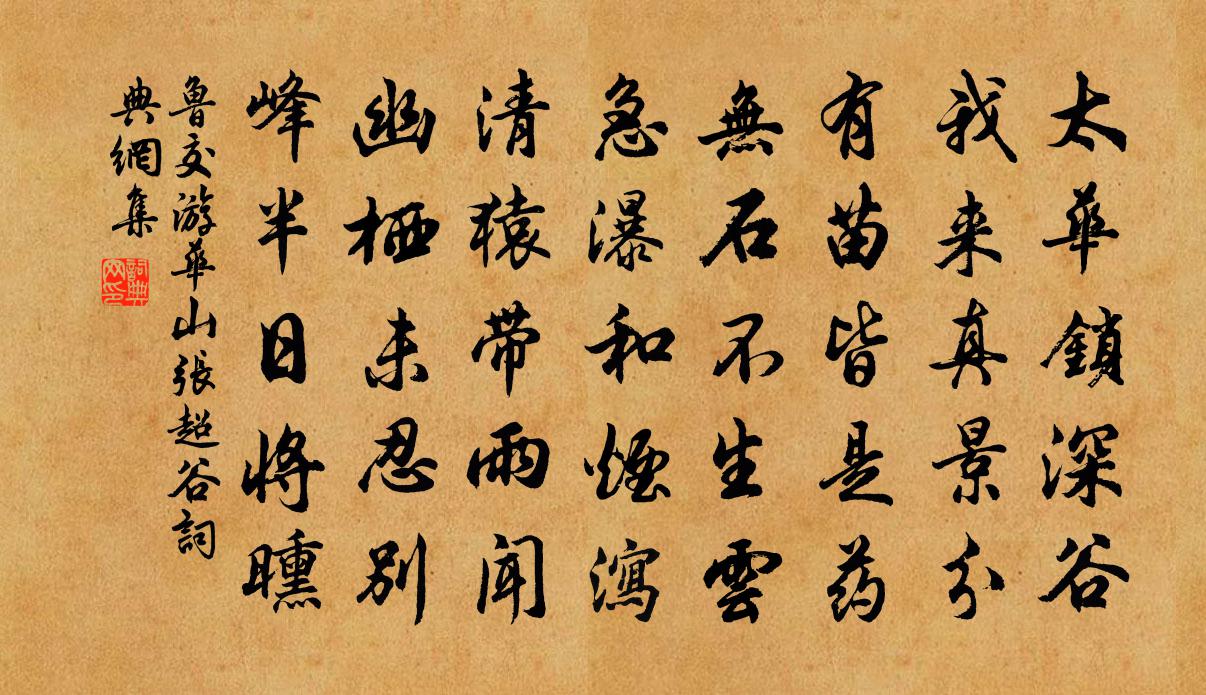 太華鎖深谷
我来真景分
有苗皆是药
無石不生雲
急瀑和煙瀉
清猿带雨聞
幽栖未忍别
峰半日將曛
魯交游華山張超谷詞
典網集
詞典
网印